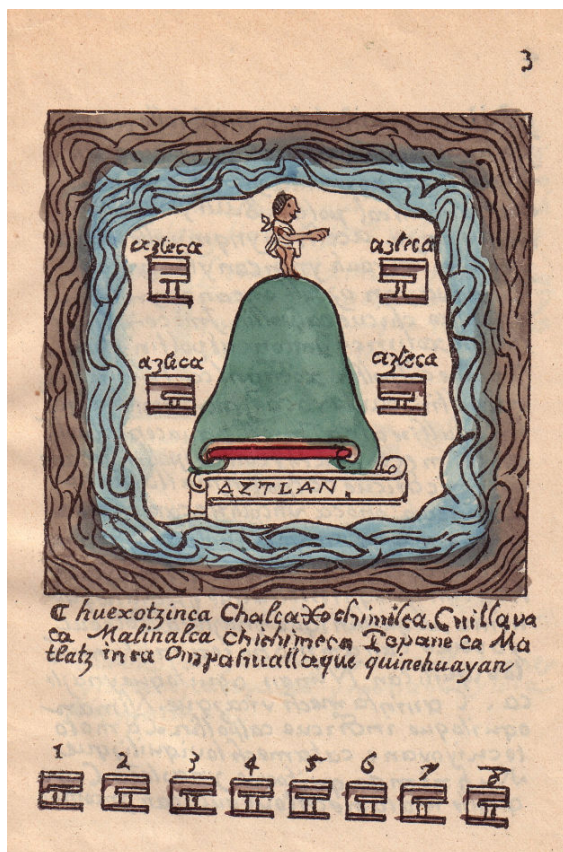 3
azteca azteca
azteca azteca
AZTLAN.
¶ huexotzinca Chalca Xochimilca. Cuitlava
ca Malinalca Chichimeca Tepaneca Ma
tlatzinca Ompahuallaque quinehuayan
1 2 3 4 5 6 7 8